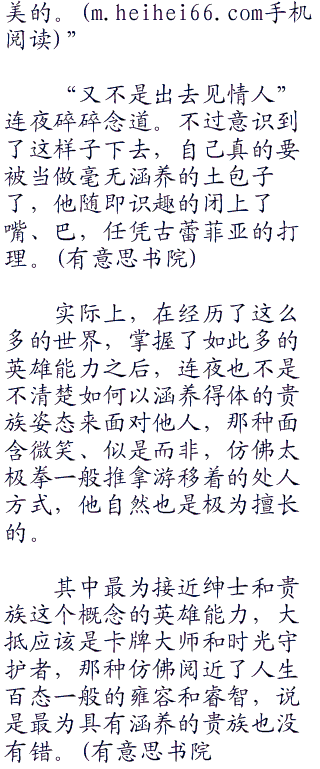 美的。(m.heihei66.com手机
阅读)”
“又不是出去见情人”
连夜碎碎念道。不过意识到
了这样子下去，自己真的要
被当做毫无涵养的土包子
了，他随即识趣的闭上了
嘴、巴，任凭古蕾菲亚的打
理。(有意思书院)
实际上，在经历了这么
多的世界，掌握了如此多的
英雄能力之后，连夜也不是
不清楚如何以涵养得体的贵
族姿态来面对他人，那种面
含微笑、似是而非，仿佛太
极拳一般推拿游移着的处人
方式，他自然也是极为擅长
的。
其中最为接近绅士和贵
族这个概念的英雄能力，大
抵应该是卡牌大师和时光守
护者，那种仿佛阅近了人生
百态一般的雍容和睿智，说
是最为具有涵养的贵族也没
有错。(有意思书院